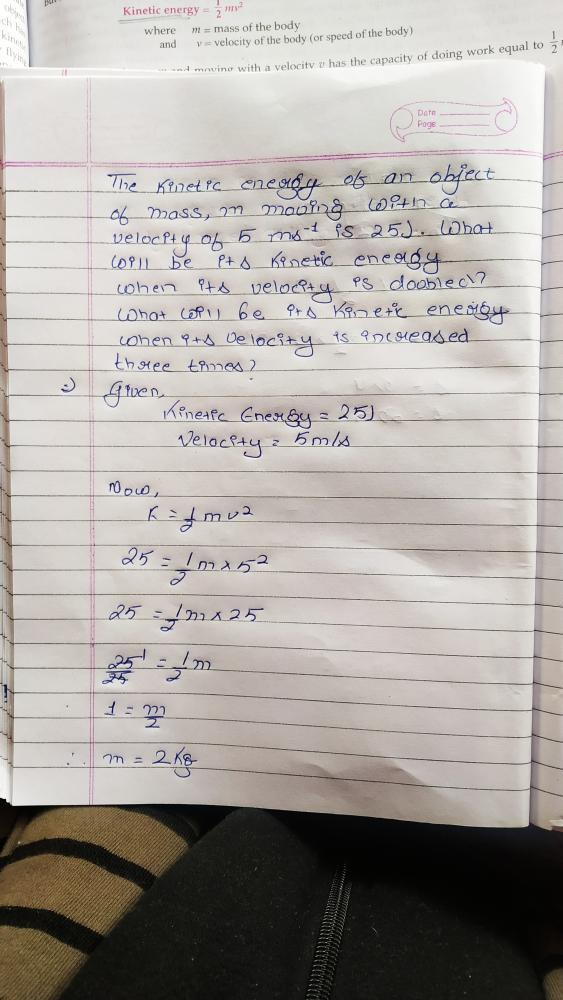 Kinetic energy = 1/2 mv²
where m = mass of the body
and v = velocity of the body (or speed of the body)
and moving with a velocity v has the capacity of doing work equal to 1/2
Date
Page
The Kinetic energy of an object
of mass, m moving with a
velocity of 5 ms⁻¹ is 25J. What
will be its Kinetic energy
when its velocity is doubled?
What will be its Kinetic energy
when its velocity is increased
three times?
=) Given,
Kinetic Energy = 25J
Velocity = 5m/s
Now,
K = 1/2 m v²
25 = 1/2 m × 5²
25 = 1/2 m × 25
25/25 1 = 1/2 m
1 = m/2
∴ m = 2 Kg